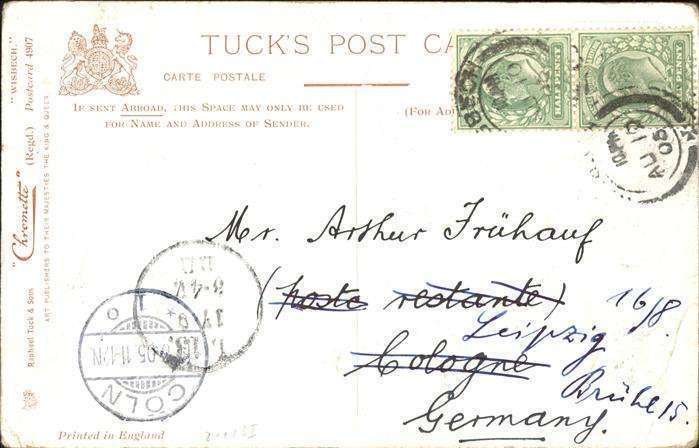 TUCK'S POST CA
CARTE POSTALE
IF SENT ABROAD, THIS SPACE MAY ONLY BE USED
FOR NAME AND ADDRESS OF SENDER.
(For Ad
HALFPENNY
HALFPENNY
AU 12
05
Mr. Arthur Frühauf
(poste restante) 16/8.
Leipzig
Cologne
Brühl 15.
Germany.
CÖLN
Printed in England
"WISBECH."
Postcard 4907
"Chromette" (Regd.)
Raphael Tuck & Sons
ART PUBLISHERS TO THEIR MAJESTIES THE KING & QUEEN